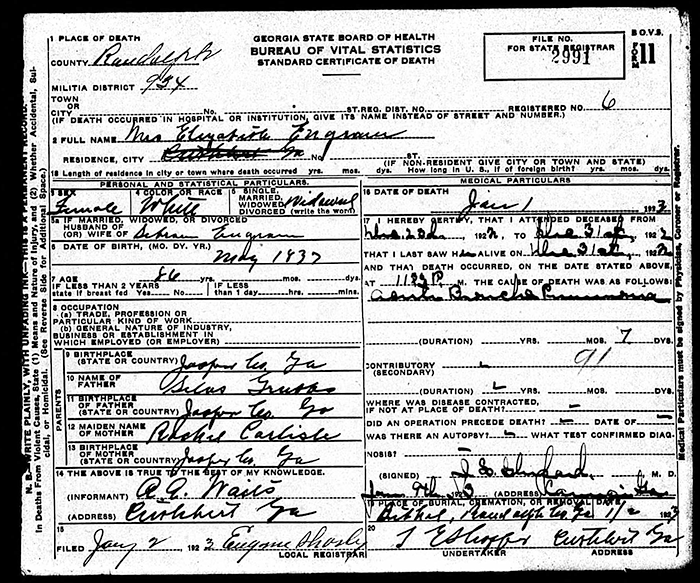 GEORGIA STATE BOARD OF HEALTH
BUREAU OF VITAL STATISTICS
STANDARD CERTIFICATE OF DEATH
FILE NO.
FOR STATE REGISTRAR
2991
B.O.V.S.
FORM 11
1 PLACE OF DEATH
COUNTY Randolph
MILITIA DISTRICT 934
TOWN
OR
CITY No. ST. REG. DIST. NO. REGISTERED NO. 6
(IF DEATH OCCURRED IN HOSPITAL OR INSTITUTION, GIVE ITS NAME INSTEAD OF STREET AND NUMBER.)
2 FULL NAME Mrs Elizabeth Engram
RESIDENCE, CITY Cuthbert Ga No. ST. (IF NON-RESIDENT GIVE CITY OR TOWN AND STATE)
18 Length of residence in city or town where death occurred yrs. mos. ds. How long in U. S., if of foreign birth? yrs. mos. ds.
PERSONAL AND STATISTICAL PARTICULARS
3 SEX Female
4 COLOR OR RACE White
5 SINGLE, MARRIED, WIDOWED, DIVORCED (write the word) Widowed
5a IF MARRIED, WIDOWED, OR DIVORCED
HUSBAND OF
(OR) WIFE OF Engram
6 DATE OF BIRTH, (MO. DY. YR.)
May 1837
7 AGE 86 yrs. mos. ds.
IF LESS THAN 2 YEARS
state if breast fed Yes No
IF LESS
than 1 day hrs. mins.
8 OCCUPATION
(a) TRADE, PROFESSION OR
PARTICULAR KIND OF WORK
(b) GENERAL NATURE OF INDUSTRY,
BUSINESS OR ESTABLISHMENT IN
WHICH EMPLOYED (OR EMPLOYER)
PARENTS
9 BIRTHPLACE
(STATE OR COUNTRY) Jasper Co. Ga
10 NAME OF
FATHER Silas Grubbs
11 BIRTHPLACE
OF FATHER
(STATE OR COUNTRY) Jasper Co. Ga
12 MAIDEN NAME
OF MOTHER Rachel Carlisle
13 BIRTHPLACE
OF MOTHER
(STATE OR COUNTRY) Jasper Co. Ga
14 THE ABOVE IS TRUE TO THE BEST OF MY KNOWLEDGE.
(INFORMANT)
(ADDRESS) Cuthbert Ga
15
FILED Jany 2 1923 Eugene
LOCAL REGISTRAR
MEDICAL PARTICULARS
16 DATE OF DEATH
Jan 1 1923
17 I HEREBY CERTIFY, THAT I ATTENDED DECEASED FROM
1922, TO Dec 31st, 1922
THAT I LAST SAW HER ALIVE ON Dec 31st, 1922
AND THAT DEATH OCCURRED, ON THE DATE STATED ABOVE,
AT P. M. THE CAUSE OF DEATH WAS AS FOLLOWS:
Acute Broncho Pneumonia
(DURATION) YRS. MOS. 7 DS.
CONTRIBUTORY 91
(SECONDARY)
(DURATION) YRS. MOS. DS.
WHERE WAS DISEASE CONTRACTED,
IF NOT AT PLACE OF DEATH?
DID AN OPERATION PRECEDE DEATH? DATE OF
WAS THERE AN AUTOPSY? WHAT TEST CONFIRMED DIAG-
NOSIS?
(SIGNED) M. D.
Jan 1923 (ADDRESS) Ga
19 PLACE OF BURIAL, CREMATION, OR REMOVAL, DATE
Bethel, Randolph Co Ga 1/2 1923
20
Cuthbert Ga
UNDERTAKER ADDRESS
N. B.—WRITE PLAINLY, WITH UNFADING INK—THIS IS A PERMANENT RECORD.
In Deaths From Violent Causes, State (1) Means and Nature of Injury, and (2) Whether Accidental, Sui-
cidal, or Homicidal. (See Reverse Side for Additional Space.)
Medical Particulars must be signed by Physician, Coroner or Registrar.